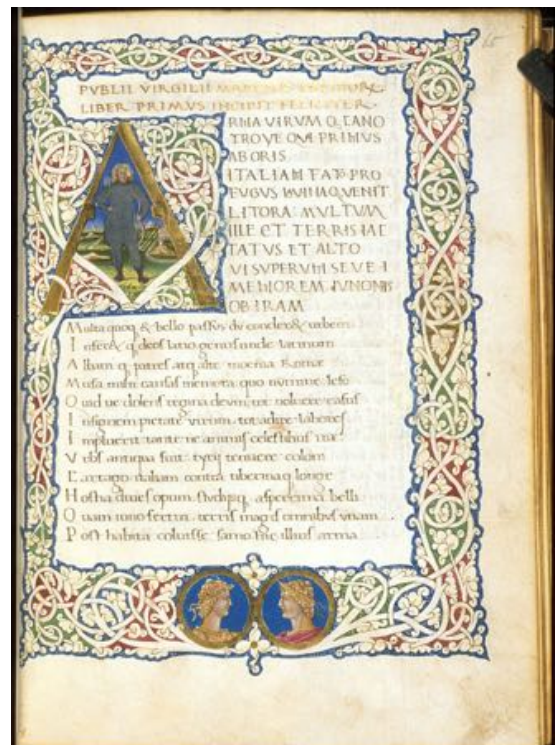 65
PVBLII VIRGILII MARONIS
LIBER PRIMVS INCIPIT FELICITER
RMA VIRVM Q CANO
TROVE QVI PRIMVS
AB ORIS
ITALIAM FATO PRO
FVGVS LAVINAQ VENIT
LITORA MVLTVM
ILLE ET TERRIS IAC
TATVS ET ALTO
VI SVPERVM SEVE
MEMOREM IVNONIS
OB IRAM
Multa quoq & bello passus dv conder& vrbem
Infer&q deos latio genus unde latinum
Albani q patres atq alte moenia Romae
Musa mihi causas memora quo numine leso
Quid ue dolens regina deum tot uoluere casus
Insignem pietate uirum tot adire labores
Impluerit tante ne animis celestibus irae
Vrbs antiqua fuit tyrii tenuere coloni
Cartago italiam contra tiberinaq longe
Hostia diues opum studiisq asperrima belli
Quam iuno fertur terris magis omnibus vnam
Post habita coluisse samo hic illius arma